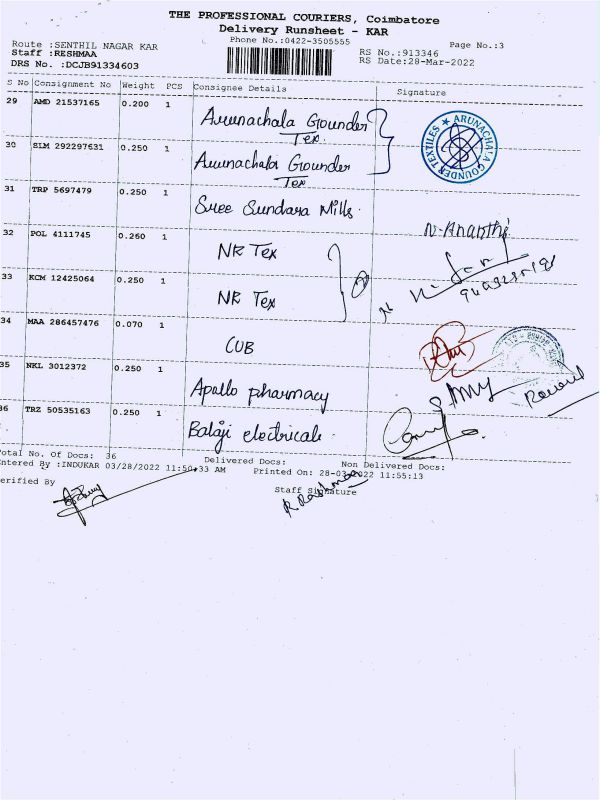 THE PROFESSIONAL COURIERS, Coimbatore
Delivery Runsheet - KAR
Phone No.:0422-3505555
Page No.:3
Route :SENTHIL NAGAR KAR
RS No.:913346
Staff :RESHMAA
RS Date:28-Mar-2022
DRS No. :DCJB91334603
S No Consignment No Weight PCS Consignee Details Signature
29 AMD 21537165 0.200 1 Arunachala Grounder Tex
ARUNACHALA GOUNDER TEXTILES
30 SLM 292297631 0.250 1 Arunachala Grounder Tex
31 TRP 5697479 0.250 1 Sree Sundara Mills
N. Ananthi
32 POL 4111745 0.260 1 NR Tex
33 KCM 12425064 0.250 1 NR Tex
34 MAA 286457476 0.070 1 CUB
35 NKL 3012372 0.250 1 Apollo pharmacy
36 TRZ 50535163 0.250 1 Balaji electricals
Total No. Of Docs: 36 Delivered Docs: Non Delivered Docs:
Entered By :INDUKAR 03/28/2022 11:50:33 AM Printed On: 28-03-2022 11:55:13
Verified By Staff Signature
R. Reshmaa